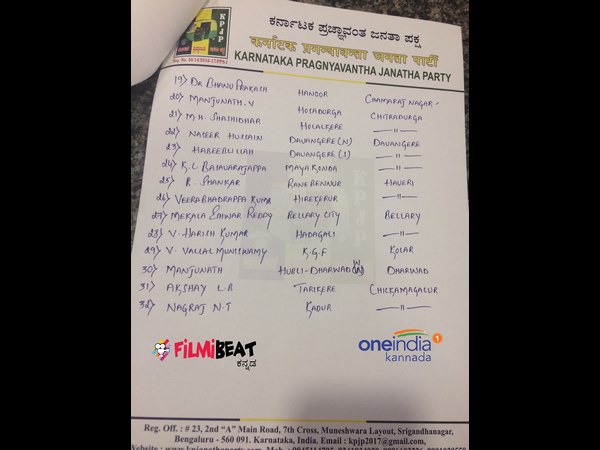 KPJP
ಕರ್ನಾಟಕ ಪ್ರಜ್ಞಾವಂತ ಜನತಾ ಪಕ್ಷ
कर्नाटक प्रग्न्यावन्ता जनता पार्टी
KARNATAKA PRAGNYAVANTHA JANATHA PARTY
19) DR BHANU PRAKASH HANOOR CHAMARAJ NAGAR
20) MANJUNATH.V HOLADURGA CHITRADURGA
21) M.H. SHASHIDHAR HOLALKERE —"—
22) NASEER HUSSAIN DAVANGERE (N) DAVANGERE
23) HABEEBULLAH DAVANGERE (S) —"—
24) K.L BASAVARAJAPPA MAYAKONDA —"—
25) R. SHANKAR RANEBENNUR HAVERI
26) VEERABHADRAPPA KUMR HIREKERUR —"—
27) MEKALA ESHWAR REDDY BELLARY CITY BELLARY
28) V. HARISH KUMAR HADAGALI —"—
29) V. VALLAL MUNISWAMY K.G.F KOLAR
30) MANJUNATH HUBLI-DHARWAD (W) DHARWAD
31) AKSHAY L.B TARIKERE CHIKKAMAGALUR
32) NAGRAJ N.T KADUR —"—
FILMIBEAT
ಕನ್ನಡ
oneindia 1
kannada
Reg. Off. : # 23, 2nd "A" Main Road, 7th Cross, Muneshwara Layout, Srigandhanagar,
Bengaluru - 560 091. Karnataka, India. Email : kpjp2017@gmail.com,